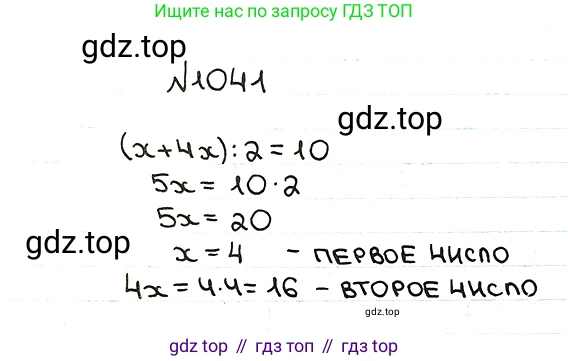 Ищите нас по запросу ГДЗ ТОП
gdz.top
№1041
gdz.top
(x+4x):2=10
5x=10·2
5x=20
gdz.top
x=4 - ПЕРВОЕ ЧИСЛО
4x=4·4=16 - ВТОРОЕ ЧИСЛО
gdz.top
gdz top // гдз топ // gdz top // гдз топ